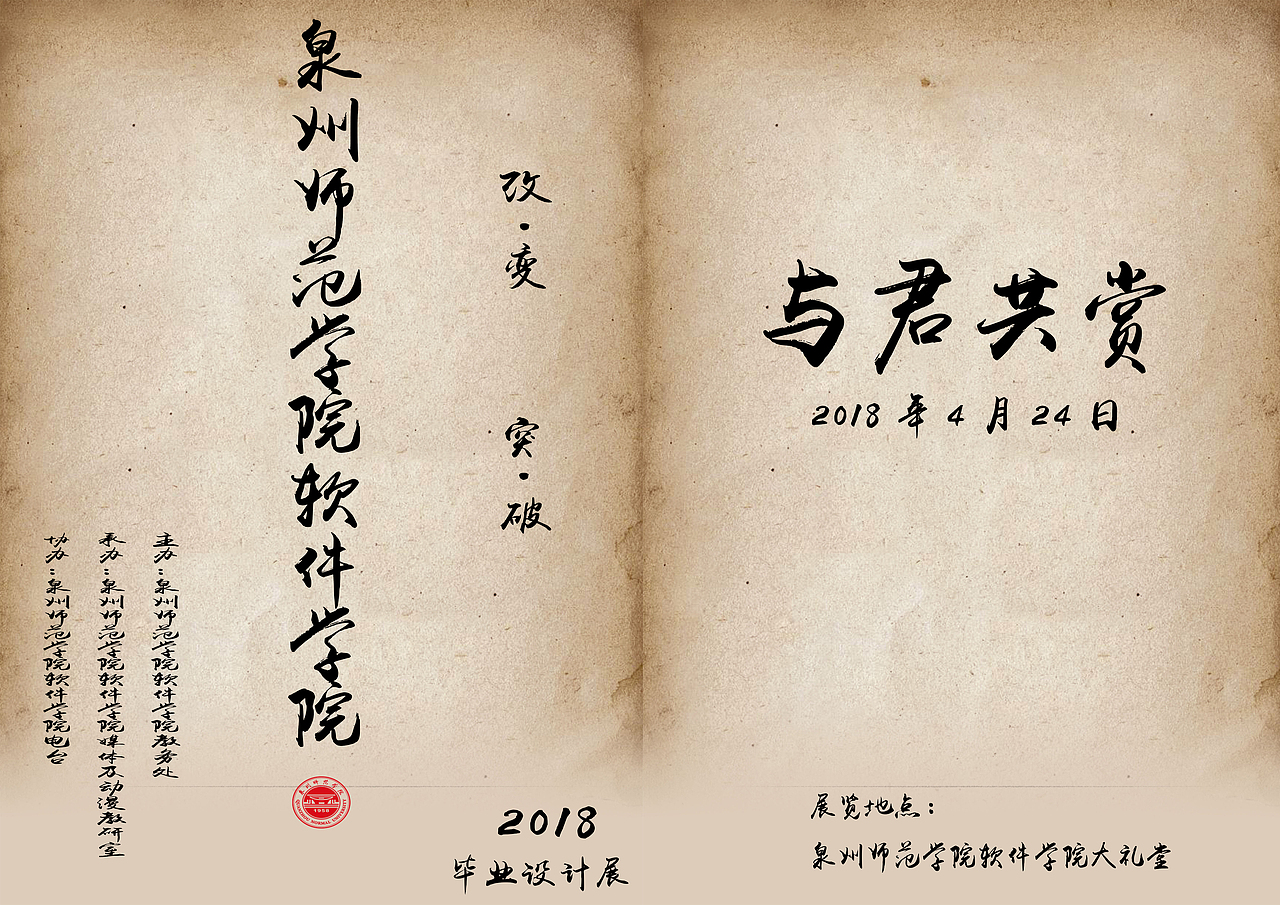 泉州师范学院软件学院
改·变
突·破
主办：泉州师范学院软件学院教务处
承办：泉州师范学院软件学院媒体及动漫教研室
协办：泉州师范学院软件学院电台
QUANZHOU NORMAL UNIVERSITY
1958
2018
毕业设计展
与君共赏
2018年4月24日
展览地点：
泉州师范学院软件学院大礼堂